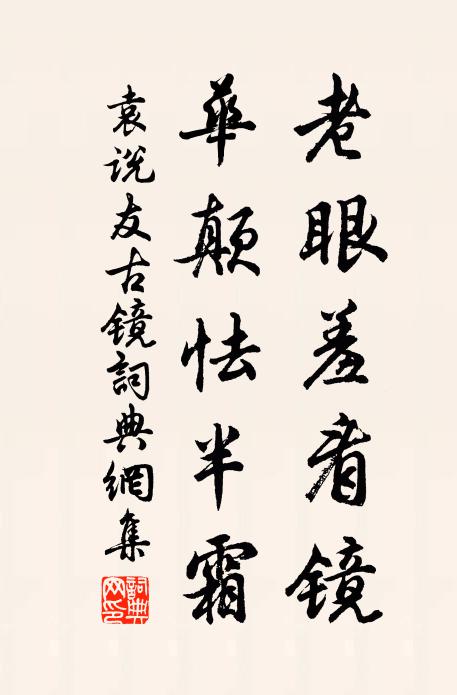 老眼羞看镜
華颠怯半霜
袁说友古镜詞典網集
詞典网印